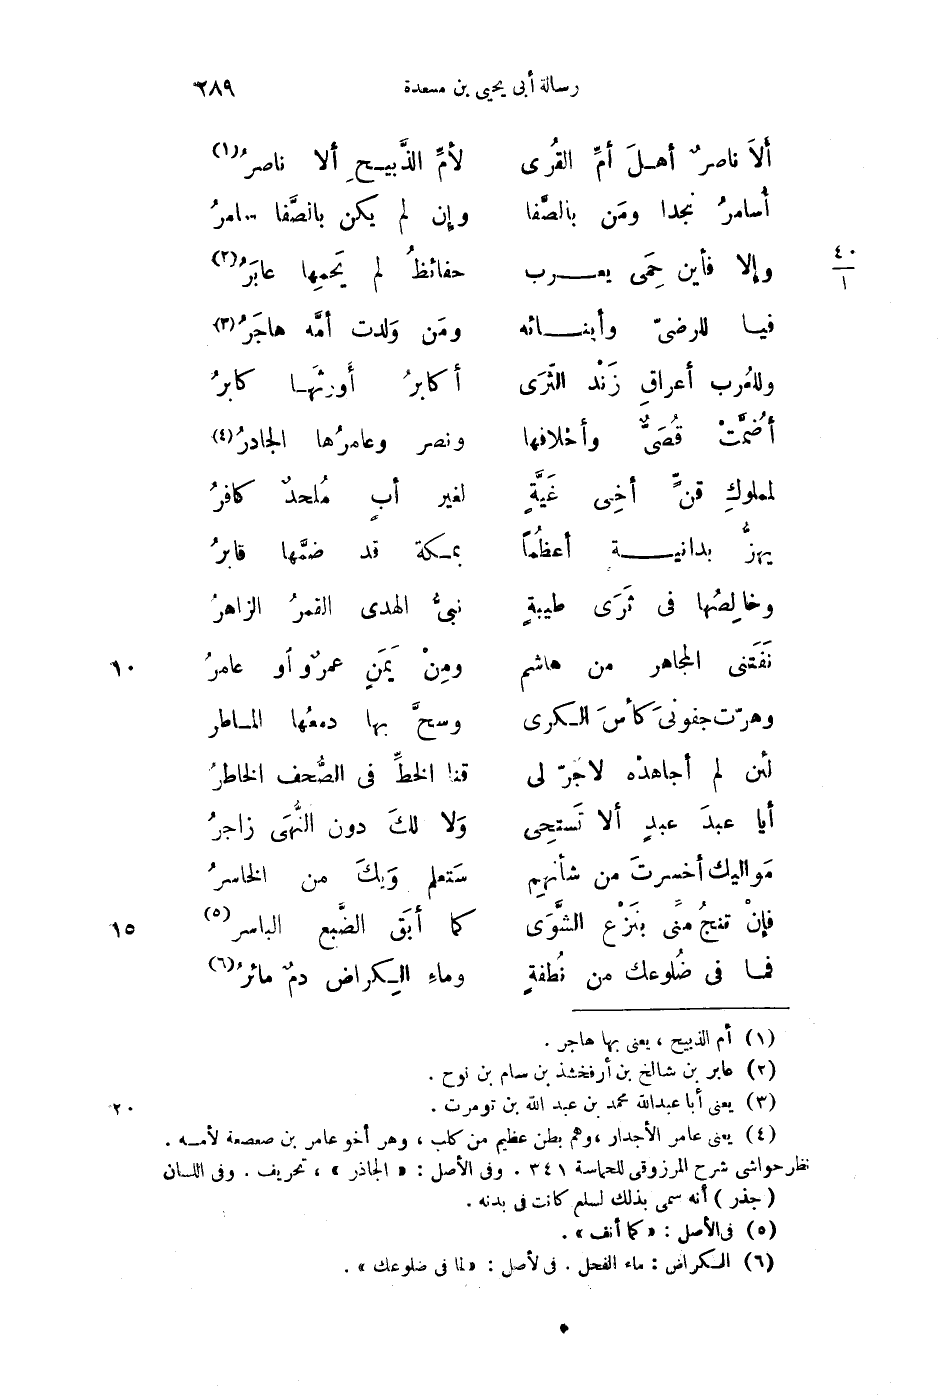 رسالة أبى يحيى بن مسعدة ٢٨٩
ألَا ناصرٌ أهلَ أمِّ القُرى لأمِّ الذَّبيحِ ألا ناصرُ(١)
أُسامرُ نجدا ومَن بالصَّفا وإن لم يكن بالصَّفا سامرُ
وإلا فأين حِمَى يعرب حفائظُ لم يَحمِها عابَرُ(٢) ٤٠ / ١
فيا للرضىّ وأبنائه ومَن وَلدت أمَّه هاجَرُ(٣)
وللعُرب أعراقِ زَنْد الثّرَى أكابرُ أورثَهَا كابرُ
أضُمَّتْ قُصَىٌّ وأخلافها ونصر وعامرُها الجادرُ(٤)
لمملوكِ قنٍّ أخِى غَيَّةٍ لغير أبٍ مُلحدٌ كافرُ
يهزُّ بدانية أعظُماً بمكة قد ضمَّها قابرُ
وخالِصُها فى ثَرَى طيبةٍ نبىُّ الهدى القمرُ الزاهرُ
نَفَتَنى المجاهر من هاشم ومِنْ يَمَنٍ عمرٌو أو عامرُ ١٠
وهرّت جفونىَ كأسَ الكرى وسحَّ بها دمعُها الماطر
لئن لم أجاهدْه لاجَرّ لى قنا الخطِّ فى الصُّحف الخاطرُ
أيا عبدَ عبدٍ ألا تَستحِى وَلا لكَ دون النُّهَى زاجرُ
مَواليك أخسرتَ من شأنهِم سَتعلم وَيكَ من الخاسرُ
فإنْ تنجُ منِّى بنَزْع الشَّوَى كما أبَق الضَّبع الباسر(٥) ١٥
فما فى ضُلوعك من نُطفةٍ وماءِ الكراض دمٌ مائرُ(٦)
(١) أم الذبيح ، يعنى بها هاجر .
(٢) عابر بن شالخ بن أرفخشذ بن سام بن نوح .
(٣) يعنى أبا عبدالله محمد بن عبد الله بن تومرت . ٢٠
(٤) يعنى عامر الأجدار ،وهم بطن عظيم من كلب ، وهر أخو عامر بن صعصعة لأمه .
نظر حواشى شرح المرزوقى للحماسة ٣٤١ . وفى الأصل : « الجاذر » ، تحريف . وفى اللسان
( جذر ) أنه سمى بذلك لسلم كانت فى بدنه .
(٥) فى الأصل : « كما أنف » .
(٦) الكراض : ماء الفحل . فى لأصل : « لما فى ضلوعك » .